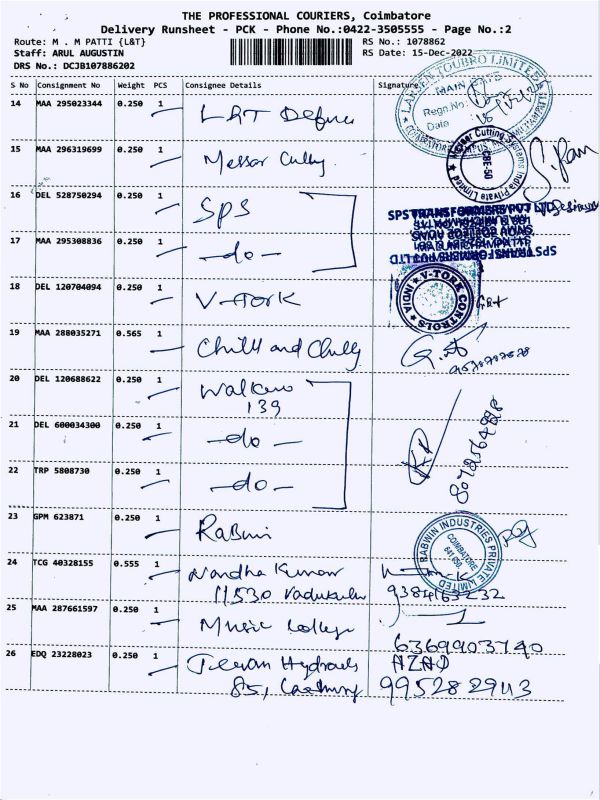 THE PROFESSIONAL COURIERS, Coimbatore
Delivery Runsheet - PCK - Phone No.:0422-3505555 - Page No.:2
Route: M . M PATTI {L&T} RS No.: 1078862
Staff: ARUL AUGUSTIN RS Date: 15-Dec-2022
DRS No.: DCJB107886202
S No Consignment No Weight PCS Consignee Details Signature
LARSEN TOUBRO LIMITED
MAIN GATE
Regn.No:
Date
14 MAA 295023344 0.250 1 L&T Defence
15 MAA 296319699 0.250 1 Messer Cutting
Messer Cutting Systems India Private Limited
CBE-50
16 DEL 528750294 0.250 1 SPS
SPS TRANSFORMERS PVT LTD
17 MAA 295308836 0.250 1 -do-
18 DEL 120704094 0.250 1 V-Tork
V-TORK CONTROLS (INDIA)
19 MAA 288035271 0.565 1 Chilli and Chilly
20 DEL 120688622 0.250 1 Walkero
139
21 DEL 600034300 0.250 1 -do-
8072564898
22 TRP 5808730 0.250 1 -do-
23 GPM 623871 0.250 1 Rabwin
RABWIN INDUSTRIES PRIVATE LIMITED
COIMBATORE
641 050.
24 TCG 40328155 0.555 1 Nandha Kumar
11530 Vadukulu 9384163232
25 MAA 287661597 0.250 1 Music College
6369903740
26 EDQ 23228023 0.250 1 Jeevan Hydraul AZAD
85, 9952829113